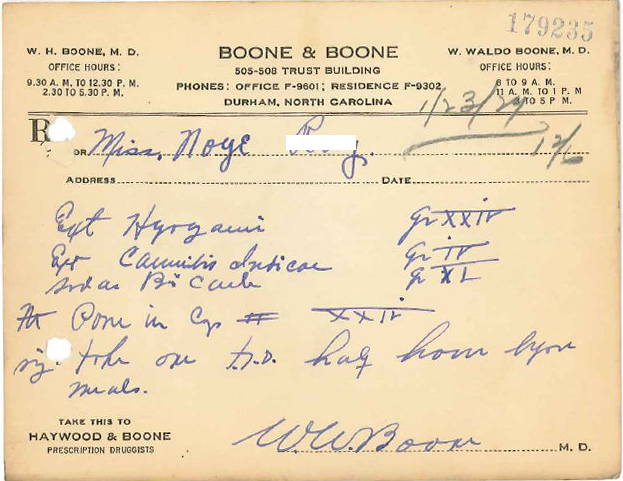 179235
W. H. BOONE, M. D.
OFFICE HOURS:
9.30 A. M. TO 12.30 P. M.
2.30 TO 5.30 P. M.
BOONE & BOONE
505-508 TRUST BUILDING
PHONES: OFFICE F-9601; RESIDENCE F-9302
DURHAM, NORTH CAROLINA
W. WALDO BOONE, M. D.
OFFICE HOURS:
8 TO 9 A. M.
11 A. M. TO 1 P. M
3 TO 5 P. M.
1/23/
FOR Miss. Noye
ADDRESS DATE
Ext Hyosyami gr XXIV
Ext Cannabis Indicae gr IV
Sodas Bi Carb gr XL
Ft Pone in Cap # XXIV
Sig. Take one t.i.d. half hour before
meals.
TAKE THIS TO
HAYWOOD & BOONE
PRESCRIPTION DRUGGISTS
W. W. Boone M. D.